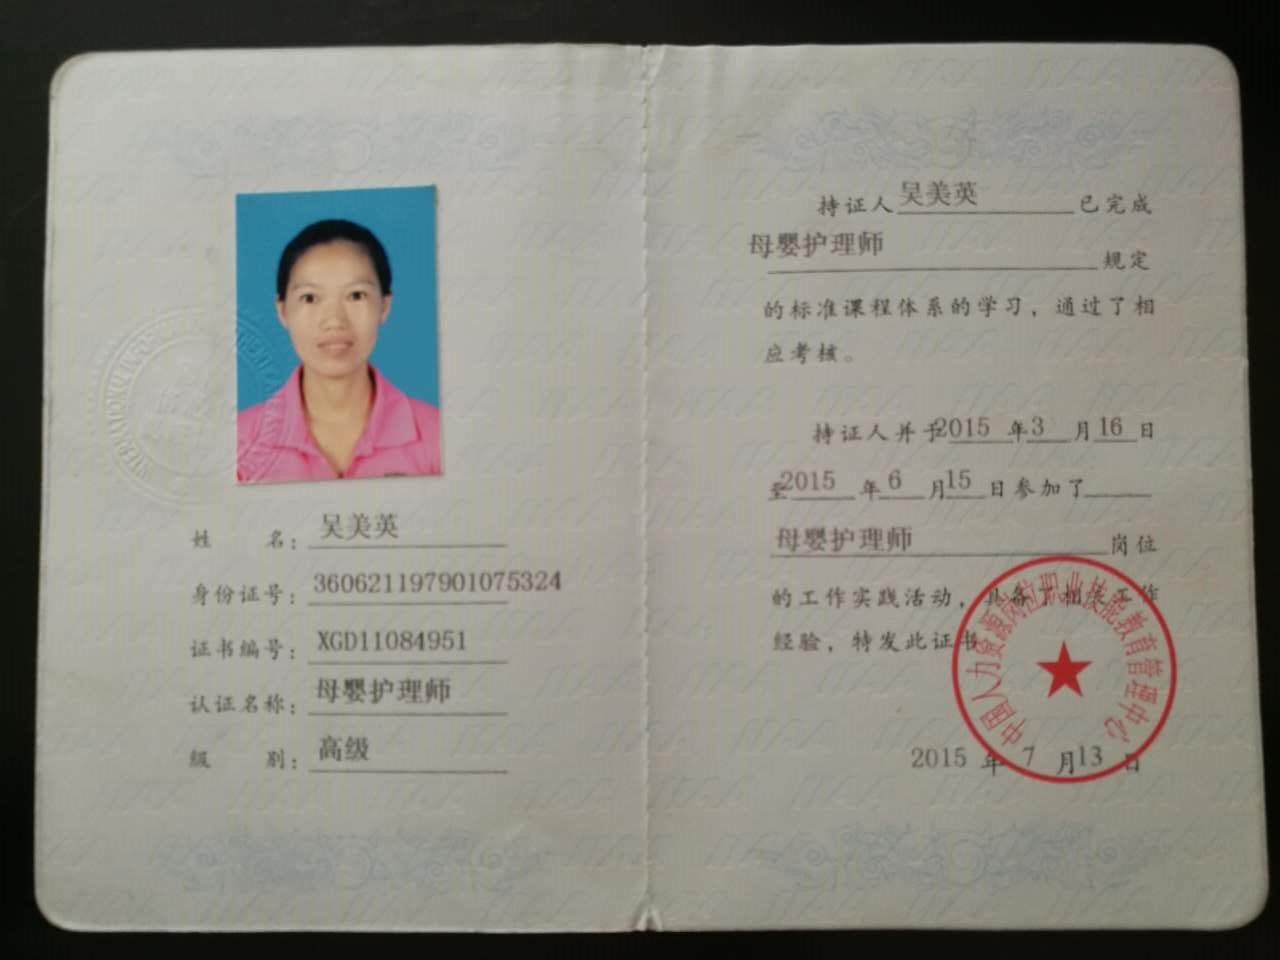 姓 名：吴美英
身份证号：360621197901075324
证书编号：XGD11084951
认证名称：母婴护理师
级 别：高级
持证人吴美英已完成
母婴护理师规定
的标准课程体系的学习，通过了相
应考核。
持证人并于2015年3月16日
至2015年6月15日参加了
母婴护理师岗位
的工作实践活动，具备了相关工作
经验，特发此证书
中国人力资源岗位职业技能教育管理中心
2015年7月13日